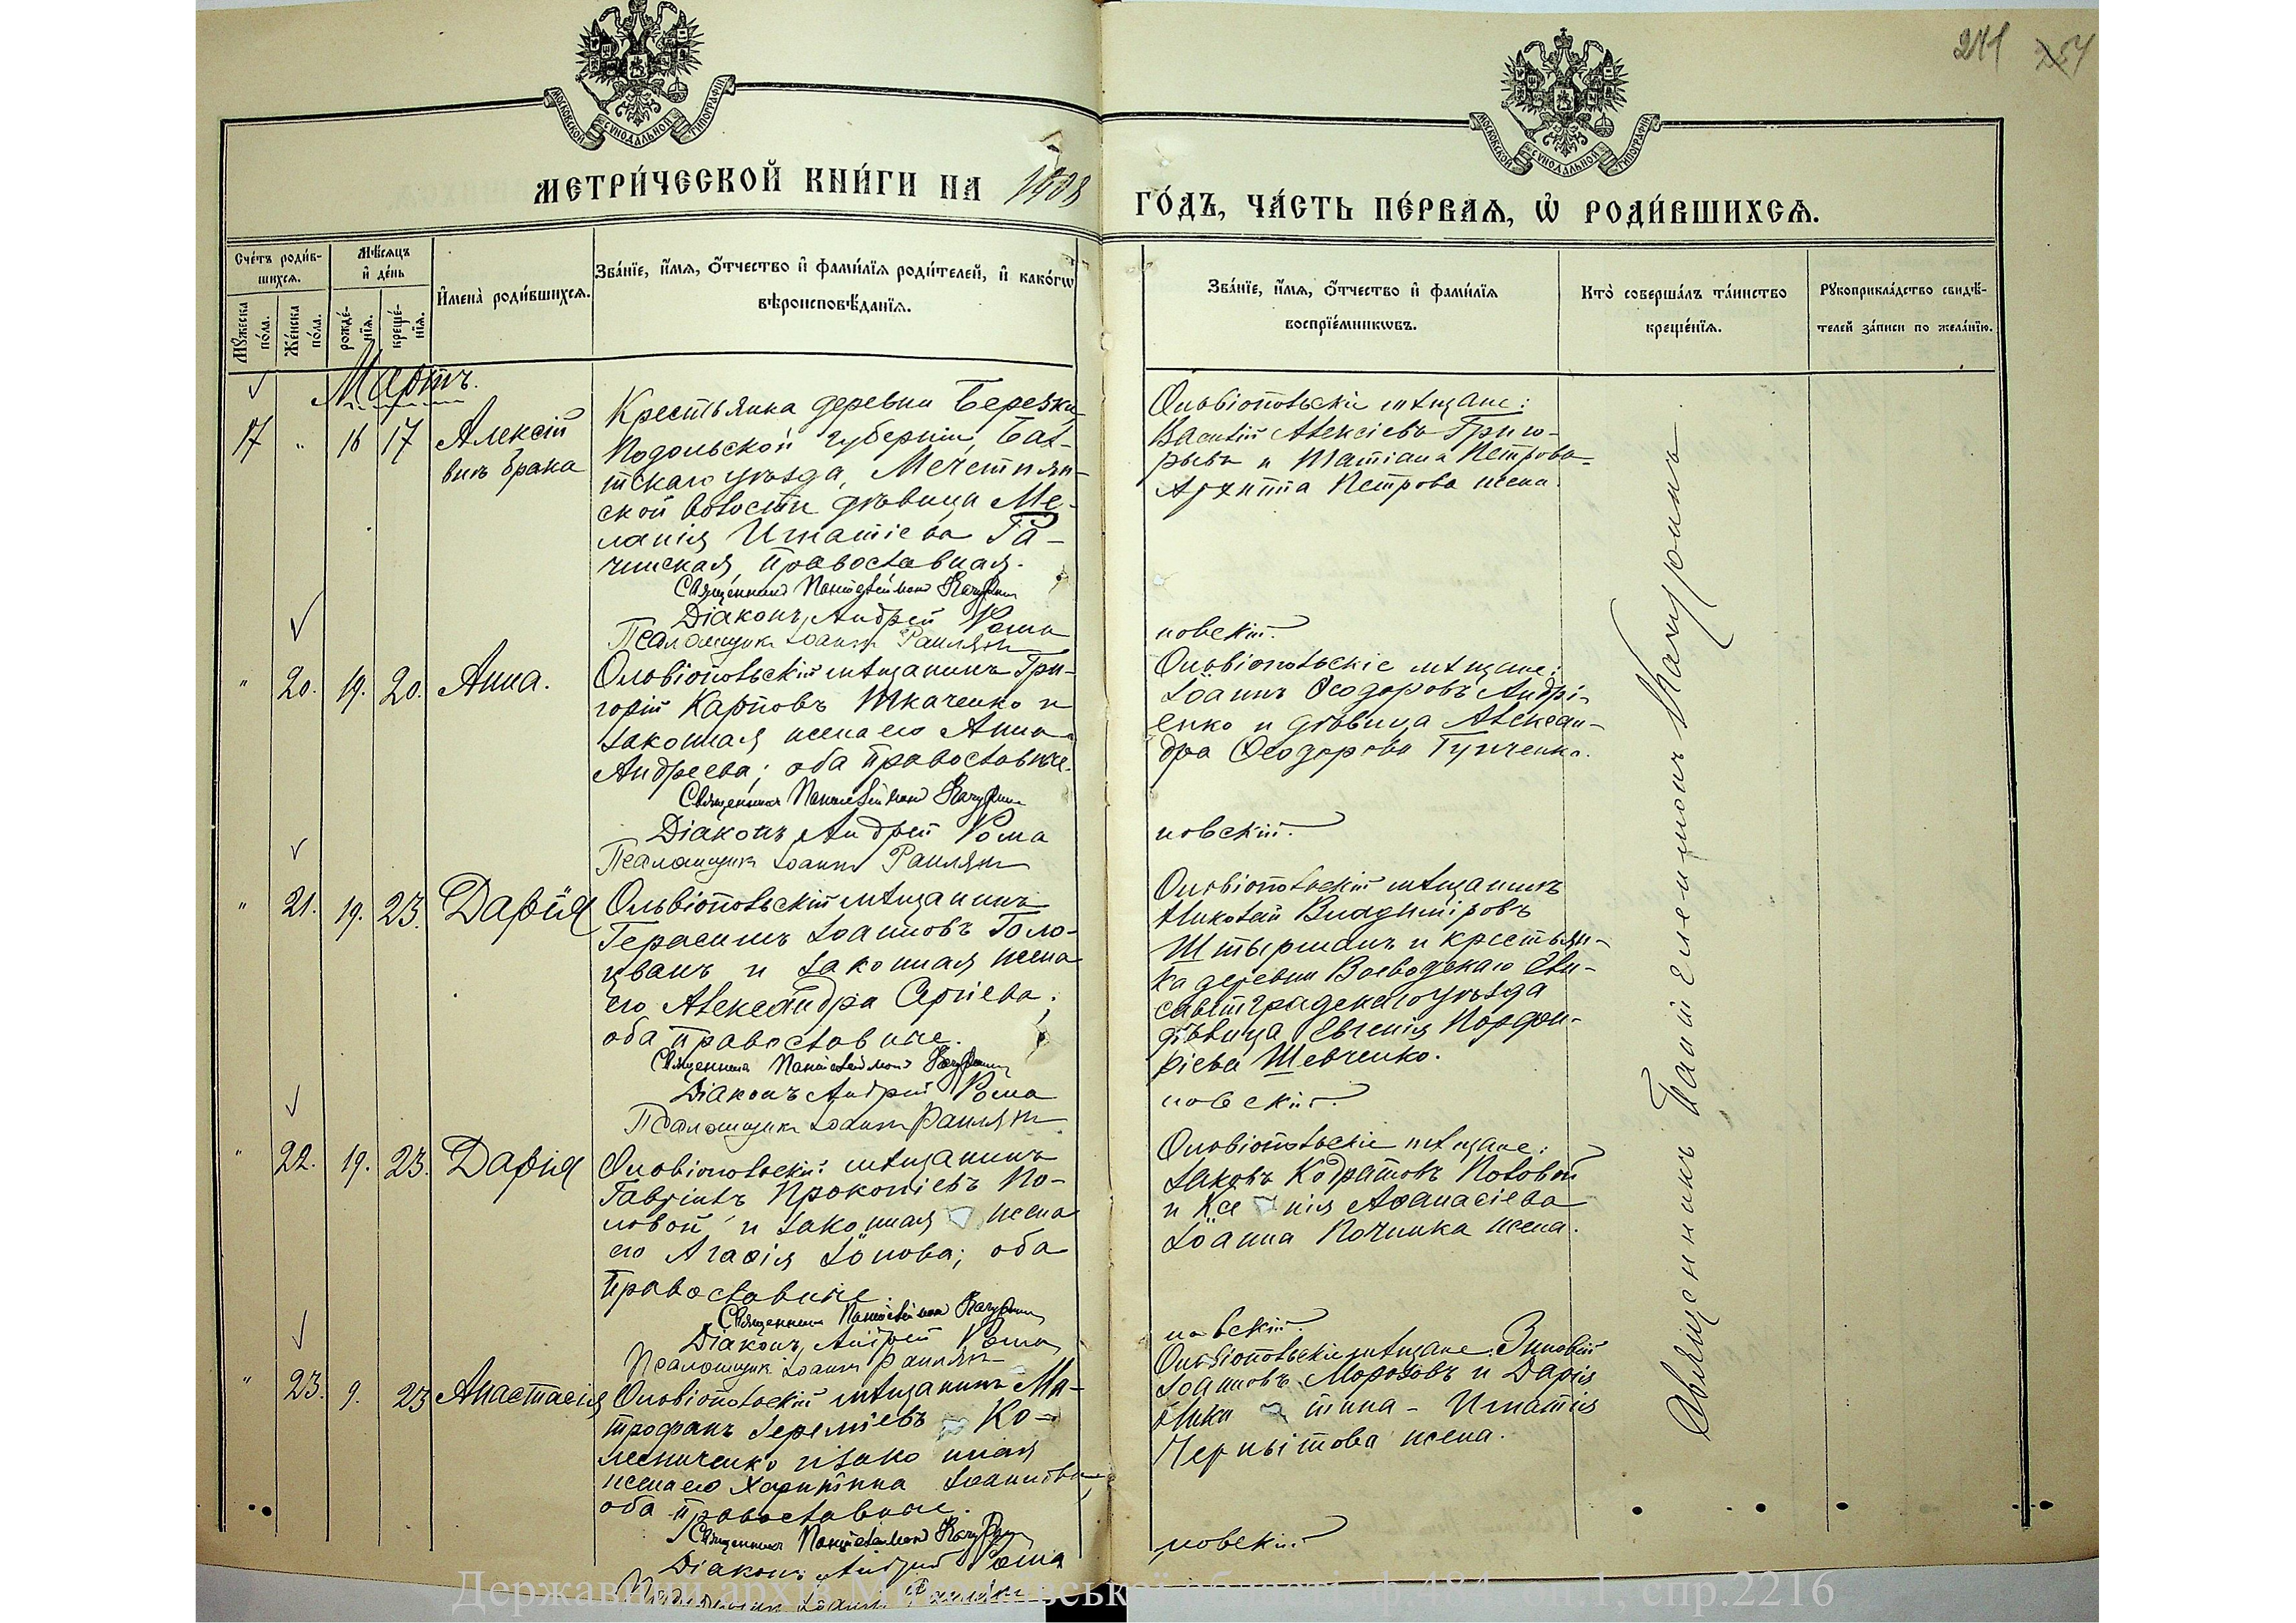 241 254
МОСКОВСКОЙ СѴНОДАЛЬНОЙ ТИПОГРАФІИ
МОСКОВСКОЙ СѴНОДАЛЬНОЙ ТИПОГРАФІИ
МЕТРИ́ЧЕСКОЙ КНИ́ГИ НА 1908
ГО́ДЪ, ЧА́СТЬ ПЕ́РВАѦ, Ѡ҆ РОДИ́ВШИХСѦ.
Сче́тъ роди́в-
шихсѧ.
Мѣ́сѧцъ
и҆ де́нь
Мꙋ́жеска
по́ла.
Же́нска
по́ла.
рожде́-
нїѧ.
креще́-
нїѧ.
И҆мена̀ роди́вшихсѧ.
Зва́нїе, и҆́мѧ, ѻ҆́тчество и҆ фами́лїѧ роди́телей, и҆ како́гѡ
вѣроисповѣ́данїѧ.
Зва́нїе, и҆́мѧ, ѻ҆́тчество и҆ фами́лїѧ
воспрїе́мникѡвъ.
Кто̀ соверша́лъ та́инство
креще́нїѧ.
Рꙋкоприкла́дство свидѣ́-
телей за́писи по жела́нїю.
Мартъ.
17 " 16 17 Алексій
внѣ брака
Крестьянка деревни Березки
Подольской губерніи, Бал-
тскаго уѣзда, Мечетнян-
ской волости дѣвица Ме-
ланія Игнатіева Га-
чинская, православная.
Священникъ Пантелеймонъ
Діаконъ Андрей Рома
Псаломщикъ Іоаннъ Раилян
Ольвіопольскіе мѣщане:
Василій Алексіевъ Григо-
рьевъ и Татіана Петрова-
Архиппа Петрова жена.
новскій.
" 20. 19. 20. Анна.
Ольвіопольскій мѣщанинъ Гри-
горій Карповъ Ткаченко и
законная жена его Анна
Андреева; оба православные.
Священникъ Пантелеймонъ
Діаконъ Андрей Рома
Псаломщикъ Іоаннъ Раилян
Ольвіопольскіе мѣщане:
Іоаннъ Ѳеодоровъ Андрі-
енко и дѣвица Алексан-
дра Ѳеодорова
новскій.
" 21. 19. 23. Дарія
Ольвіопольскій мѣщанинъ
Герасимъ Іоанновъ Голо-
цванъ и законная жена
его Александра Сергіева;
оба православные.
Священникъ Пантелеймонъ
Діаконъ Андрей Рома
Псаломщикъ Іоаннъ Раилян
Ольвіопольскій мѣщанинъ
Николай Владиміровъ
Штырманъ и крестьян-
ка деревни Воеводскаго Ели-
саветградскаго уѣзда
дѣвица Евгенія Порфи-
ріева Шевченко.
новскій.
" 22. 19. 23. Дарія
Ольвіопольскій мѣщанинъ
Гавріилъ Прокопіевъ По-
ловой и законная жена
его Агафія Іонова; оба
православные.
Священникъ Пантелеймонъ
Діаконъ Андрей Рома
Псаломщикъ Іоаннъ Раилян
Ольвіопольскіе мѣщане:
Іаковъ Кодратовъ Половой
и Ксе нія Аѳанасіева
Іоанна Починка жена.
новскій.
" 23. 9. 23 Анастасія
Ольвіопольскій мѣщанинъ Ми-
трофанъ Іереміевъ Ко-
лесниченко и законная
жена его Харитина Іоаннова,
оба православные.
Священникъ Пантелеймонъ
Діаконъ Андрей Рома
Псаломщикъ Іоаннъ Раилян
Ольвіопольскіе мѣщане: Зиновій
Іоанновъ Морозовъ и Дарія
Ники тина - Игнатія
Чернытова жена.
новскій.
Священникъ Пантелеимонъ
Державний архів Миколаївської області, ф.484, оп.1, спр.2216